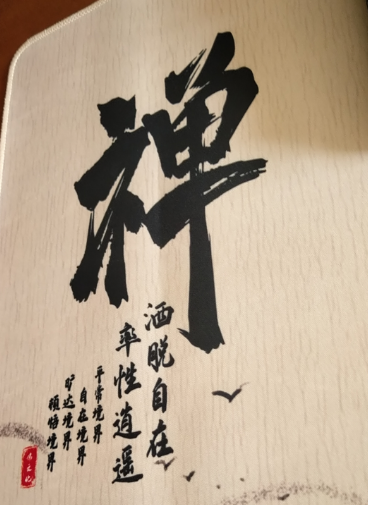 禅
洒脱自在
率性逍遥
平常境界
自在境界
旷达境界
顿悟境界